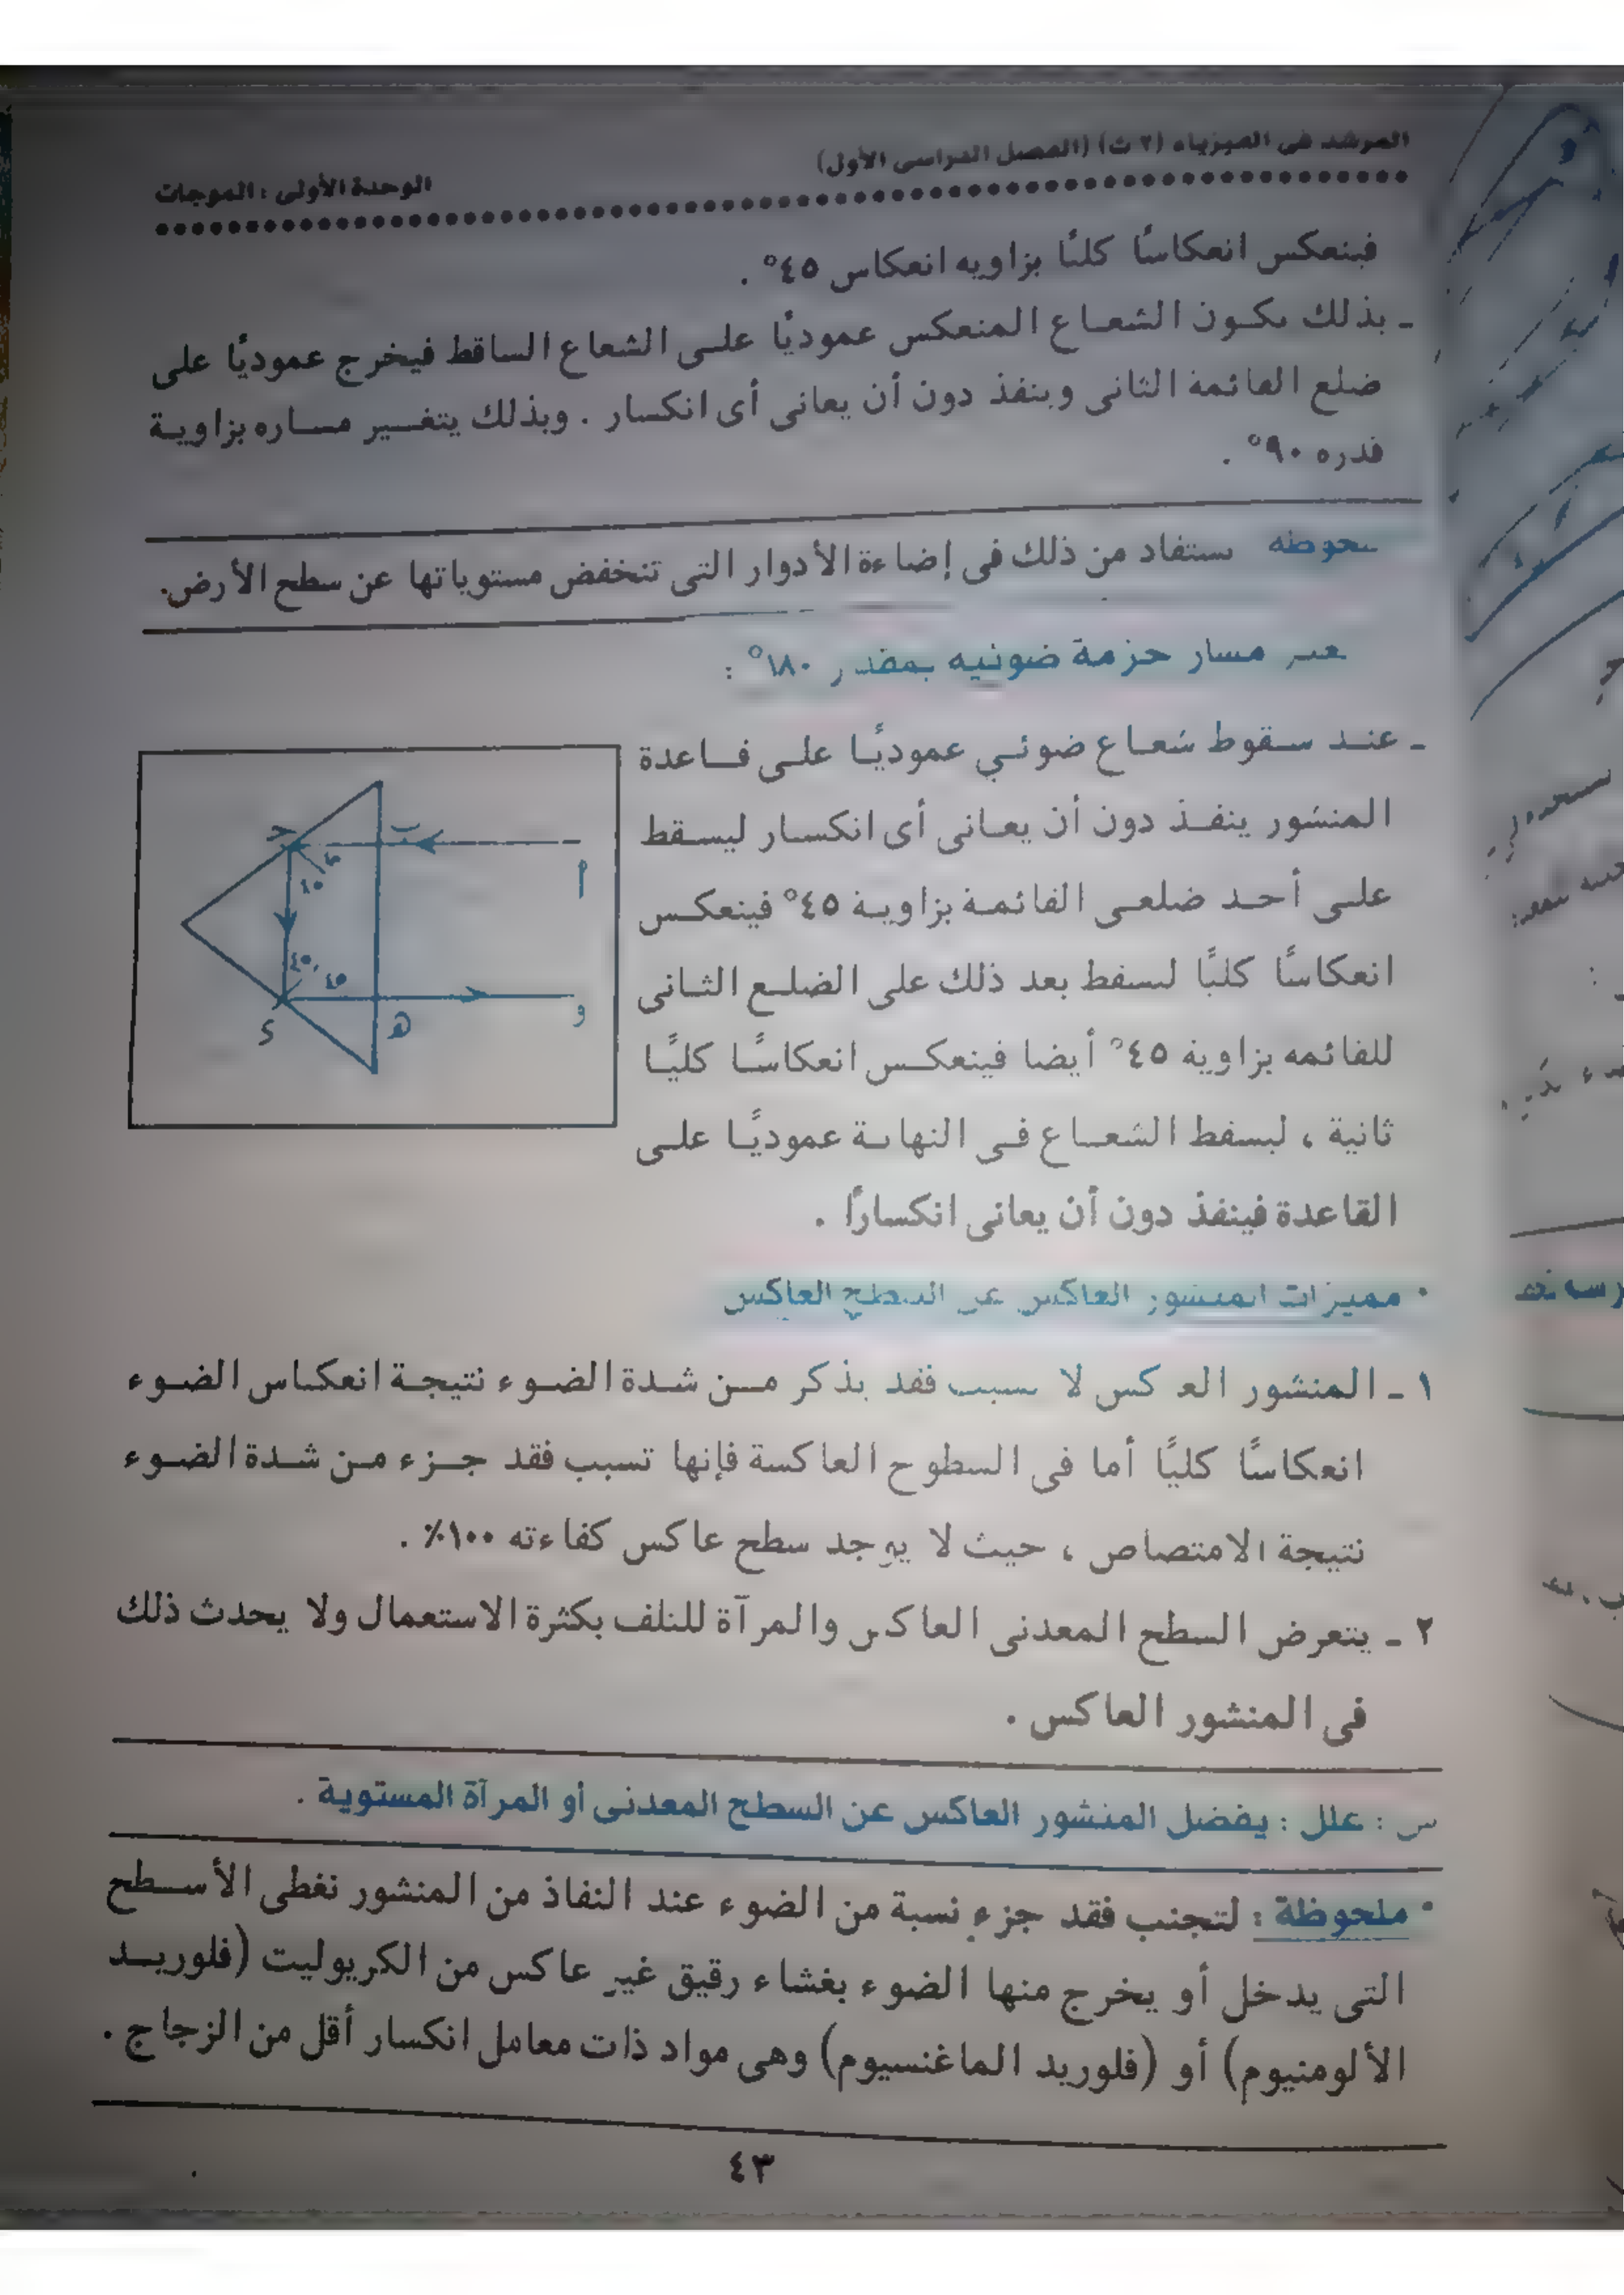 المرشد فى الفيزياء (٢ ث) (الفصل الدراسى الأول)
الوحدة الأولى : الموجات
فينعكس انعكاسًا كليًا بزاويه انعكاس ٤٥° .
ـ بذلك يكون الشعاع المنعكس عموديًا على الشعاع الساقط فيخرج عموديًا على
ضلع القائمة الثانى وينفذ دون أن يعانى أى انكسار . وبذلك يتغير مساره بزاوية
قدره ٩٠° .
ملحوظة يستفاد من ذلك فى إضاءة الأدوار التى تنخفض مستوياتها عن سطح الأرض.
مسار حزمة ضوئيه بمقدار ١٨٠° :
ـ عند سقوط شعاع ضوئي عموديًا على قاعدة
المنشور ينفذ دون أن يعانى أى انكسار ليسقط
على أحد ضلعى القائمة بزاوية ٤٥° فينعكس
انعكاسًا كليًا ليسقط بعد ذلك على الضلع الثانى
للقائمه بزاوية ٤٥° أيضا فينعكس انعكاسًا كليًا
ثانية ، ليسقط الشعاع فى النهاية عموديًا على
القاعدة فينفذ دون أن يعانى انكسارًا .
أ
ب
حـ
٤٥
٤٥
٤٥
٤٥
د
هـ
و
• مميزات المنشور العاكس عن السطح العاكس
١ ـ المنشور العاكس لا يسبب فقد يذكر من شدة الضوء نتيجة انعكاس الضوء
انعكاسًا كليًا أما فى السطوح العاكسة فإنها تسبب فقد جزء من شدة الضوء
نتيجة الامتصاص ، حيث لا يوجد سطح عاكس كفاءته ١٠٠٪ .
٢ ـ يتعرض السطح المعدنى العاكس والمرآة للتلف بكثرة الاستعمال ولا يحدث ذلك
فى المنشور العاكس .
س : علل : يفضل المنشور العاكس عن السطح المعدنى أو المرآة المستوية .
• ملحوظة : لتجنب فقد جزء نسبة من الضوء عند النفاذ من المنشور نغطى الأسطح
التى يدخل أو يخرج منها الضوء بغشاء رقيق غير عاكس من الكريوليت (فلوريد
الألومنيوم) أو (فلوريد الماغنسيوم) وهى مواد ذات معامل انكسار أقل من الزجاج .
٤٣